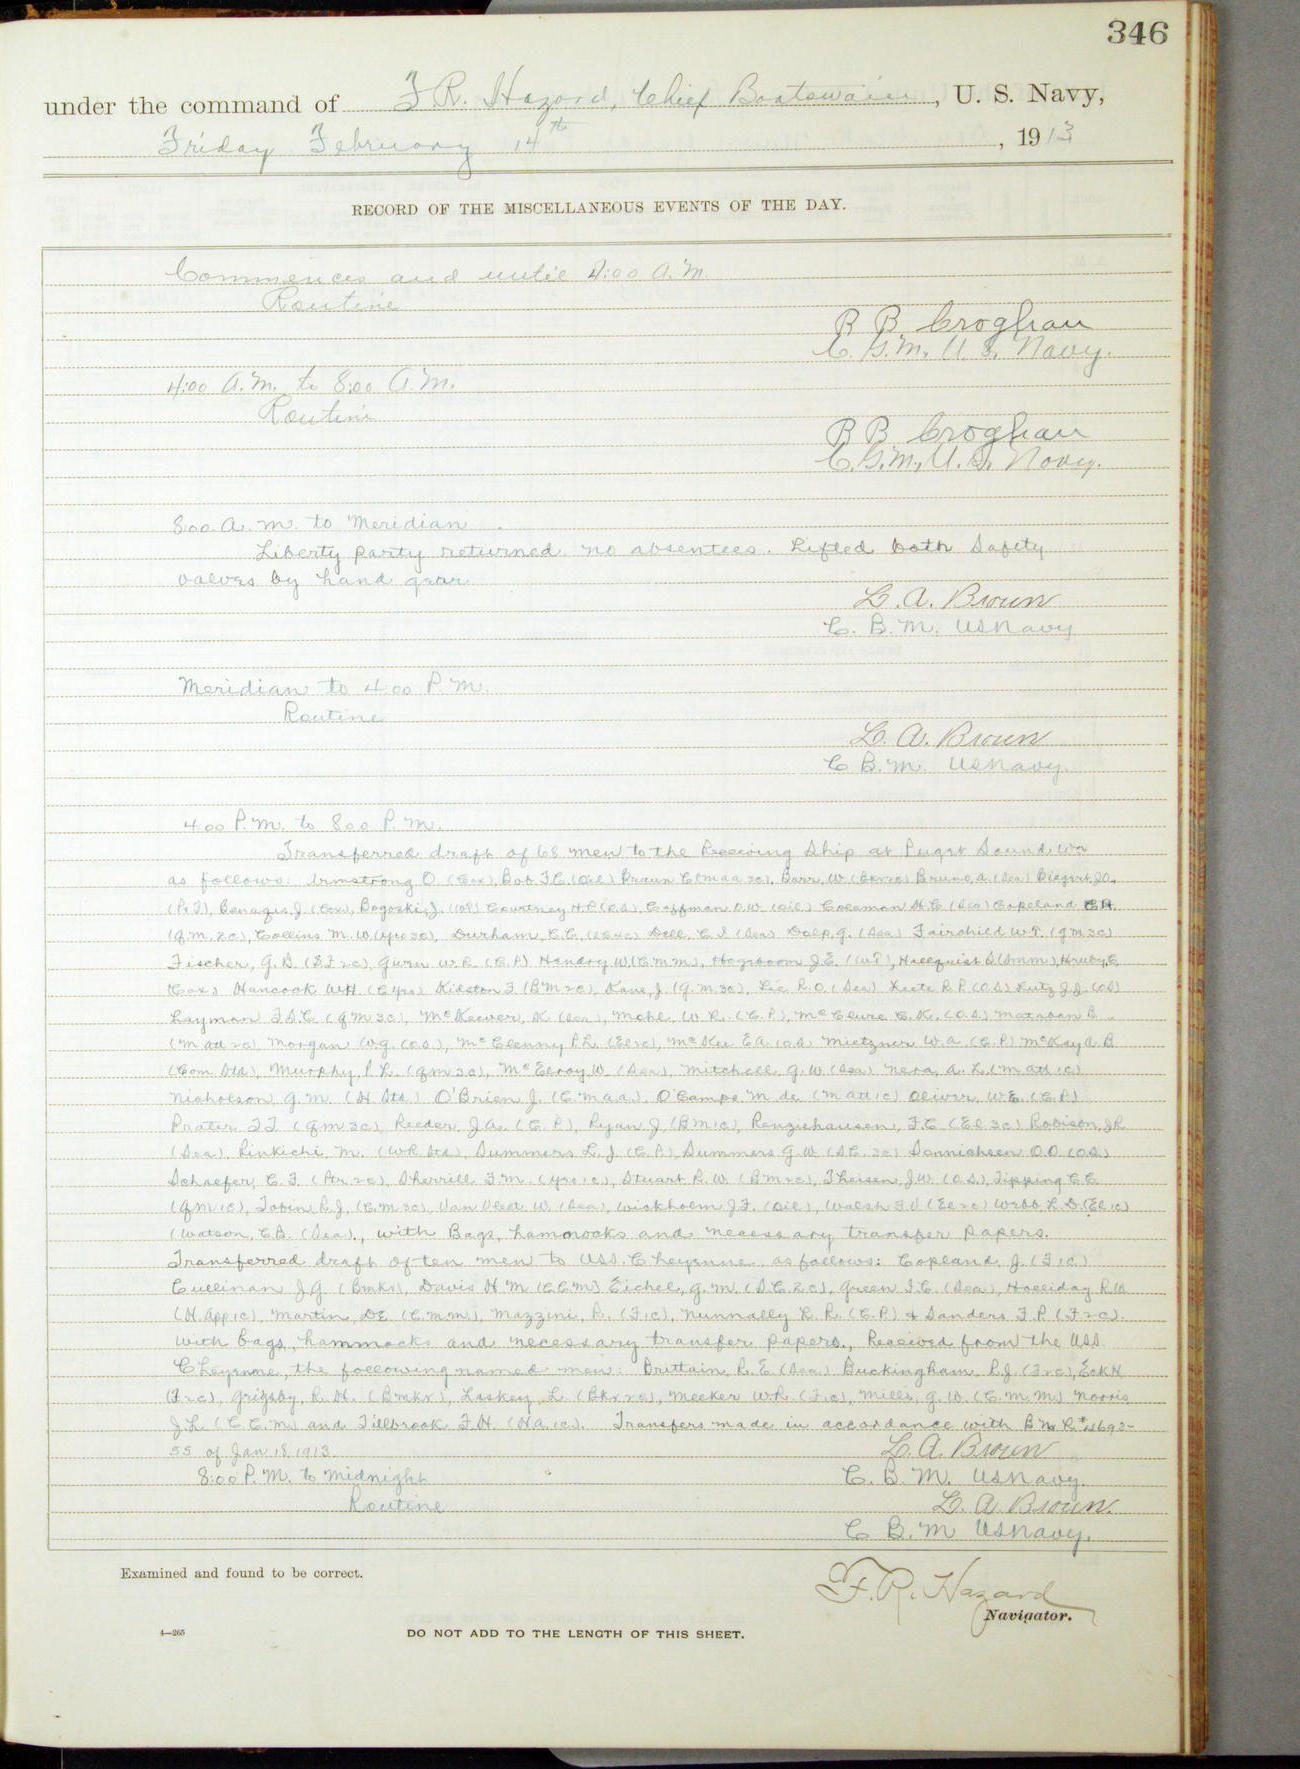 346
under the command of F. R. Hazard, Chief Boatswain, U. S. Navy,
Friday February 14th, 1913
RECORD OF THE MISCELLANEOUS EVENTS OF THE DAY.
Commences and until 4:00 A.M.
Routine
B B Croghan
C. G.M. U. S. Navy.
4:00 A.M. to 8:00 A.M.
Routine
B B Croghan
C. G.M., U. S. Navy.
8:00 A. M. to Meridian
Liberty party returned no absentees. Lifted both Safety
valves by hand gear
L. A. Brown
C. B. M. US Navy
Meridian to 4:00 P.M.
Routine
L. A. Brown
C B. M. US Navy.
4:00 P.M. to 8:00 P.M.
Transferred draft of 68 men to the Receiving Ship at Puget Sound, Wn
as follows: Armstrong O (Cox), Bob F.C. (Oil) Braun C (maa 3c), Barr, W. Bruno, A. (Sea)
Courtney H.P. (O.S.), Coffman O.W. (Oil) Coleman H.C. (Sea) Copeland
(G.M. 2c), Collins M. W. (Yeo 3c), Durham, C.C. Dell, C I (Sea) Fairchild W.T. (GM 3c)
Fischer, G. B. (SF 2c), W. R. (C.P.) Hendry W. (C.M.M.), J.E. (W.T.), Hallquist
(Cox) Hancock W.H. (C Yeo) Kidston F (B M 2c), Kane, J. (G.M. 3c), Lee R. O. (Sea) Leete R P (O.S.) Lutz J.J. (O.S)
Layman (GM 3c), McKeever, K (Sea), Mohl, W. R. (C.P.), McClure C. K. (O.S.)
(M att 2c) Morgan W.G. (O.S.), McClenny P.L. (El 2c), McKee E.A. (O.S) Mietzner W. A. (C.P) McKay A. B
(Com Std), Murphy, P. L. (GM 3c), McElroy W. (Sea), Mitchell G. W. (Sea) Nera, A. L. (M att 1c)
Nicholson, G. M. (H Std.) O'Brien J. (C.M.A.A.), O'Campo M. de (M att 1c) Oliver, W.E. (C.P.)
Prater F.F. (GM 3c), Reeder, J.A. (C. P.), Ryan J (BM 1c), Renziehausen, F.C. (El. 3c) Robison, J.R
(Sea), Rinkichi M. (WR Std), Summers L. J. (C.P.), Summers G. W. (S.C. 3c) Sonnichsen O.O (O.S.)
Schaefer, C. F. (Ptr. 2c), Sherrill F.M. (Yeo 1c), Stuart R. W. (B M 2c), Theisen, J.W. (O.S.), Tipping C.C.
(GM 1c), Tobin R.J. (G.M. 3c), Van Vleet W. (Sea), Wickholm J.F. (Oil), Walsh F.J (El 2c) Webb L.D. (El 1c)
(Watson, C.B. (Sea)., with Bags, hammocks and necessary transfer papers.
Transferred draft of ten men to USS. Cheyenne, as follows: Copland, J. (F 1c)
Cullinan J.G. (Bmkr), Davis H. M. (C.C.M) Eichel, G. M. (S.C. 2c), Green I.C. (Sea), Holliday R.W.
(H. App 1c), Martin, D.E. (C.M.M.), Mazzini, R. (F 1c), Nunnally L. R. (C.P.) & Sanders F. P. (F 2c).
with bags, hammocks and necessary transfer papers., Received from the USS
Cheyenne, the following named men: Brittain, R. E. (Sea) Buckingham, R.J. (F 2c), Eck N
(F 2c), Grigsby, R. H. (Bmkr), Laskey, L. (Bkr 2c), Meeker W.R. (F 1c), Mills, G. W. (C.M.M.) Norris
J.L. (C.C.M) and Tillbrook F.H. (HA. 1c). Transfers made in accordance with B N R # 4693-
55 of Jan 18, 1913.
L. A. Brown
8:00 P. M. to Midnight
C. B. M. US Navy.
Routine
L. A. Brown.
C B. M US Navy.
Examined and found to be correct.
F. R. Hazard
Navigator.
4—265
DO NOT ADD TO THE LENGTH OF THIS SHEET.